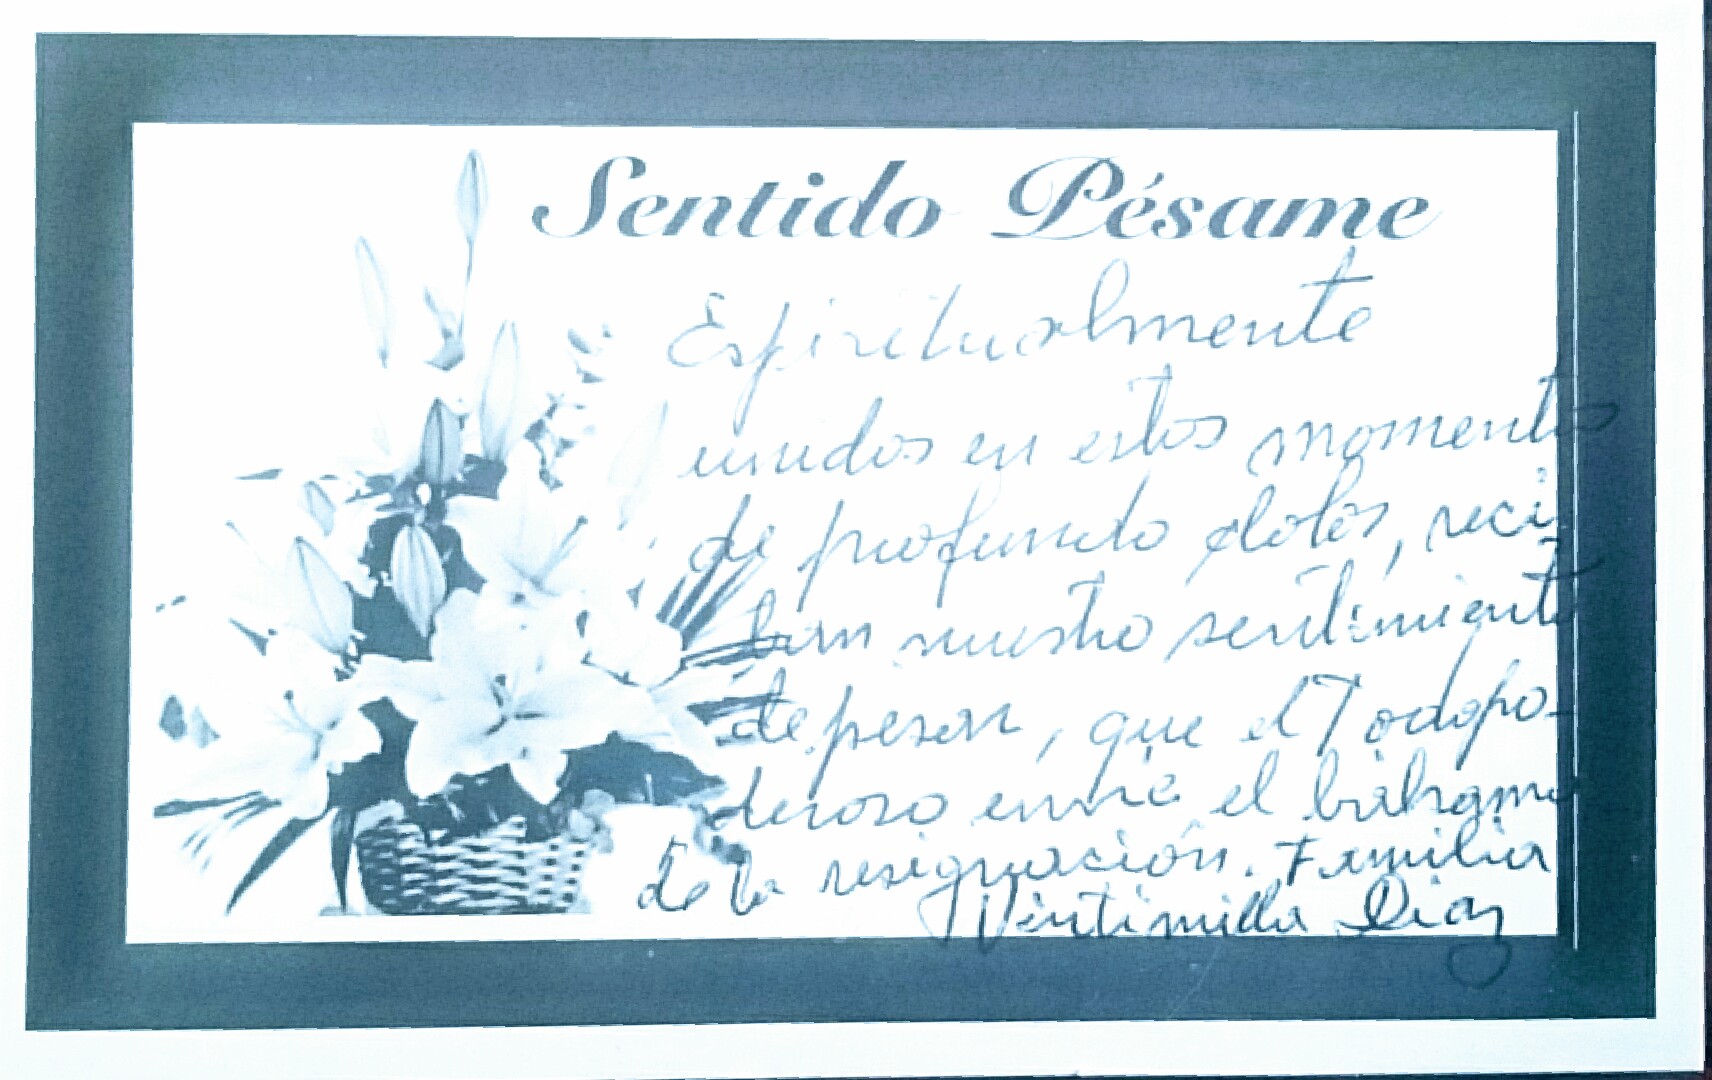 Sentido Pésame
Espiritualmente
unidos en estos momentos
de profundo dolor, reci
ban nuestro sentimiento
de pesar, que el Todopo-
deroso envie el bálsamo
de la resignación. Familia
Ventimilla Diaz